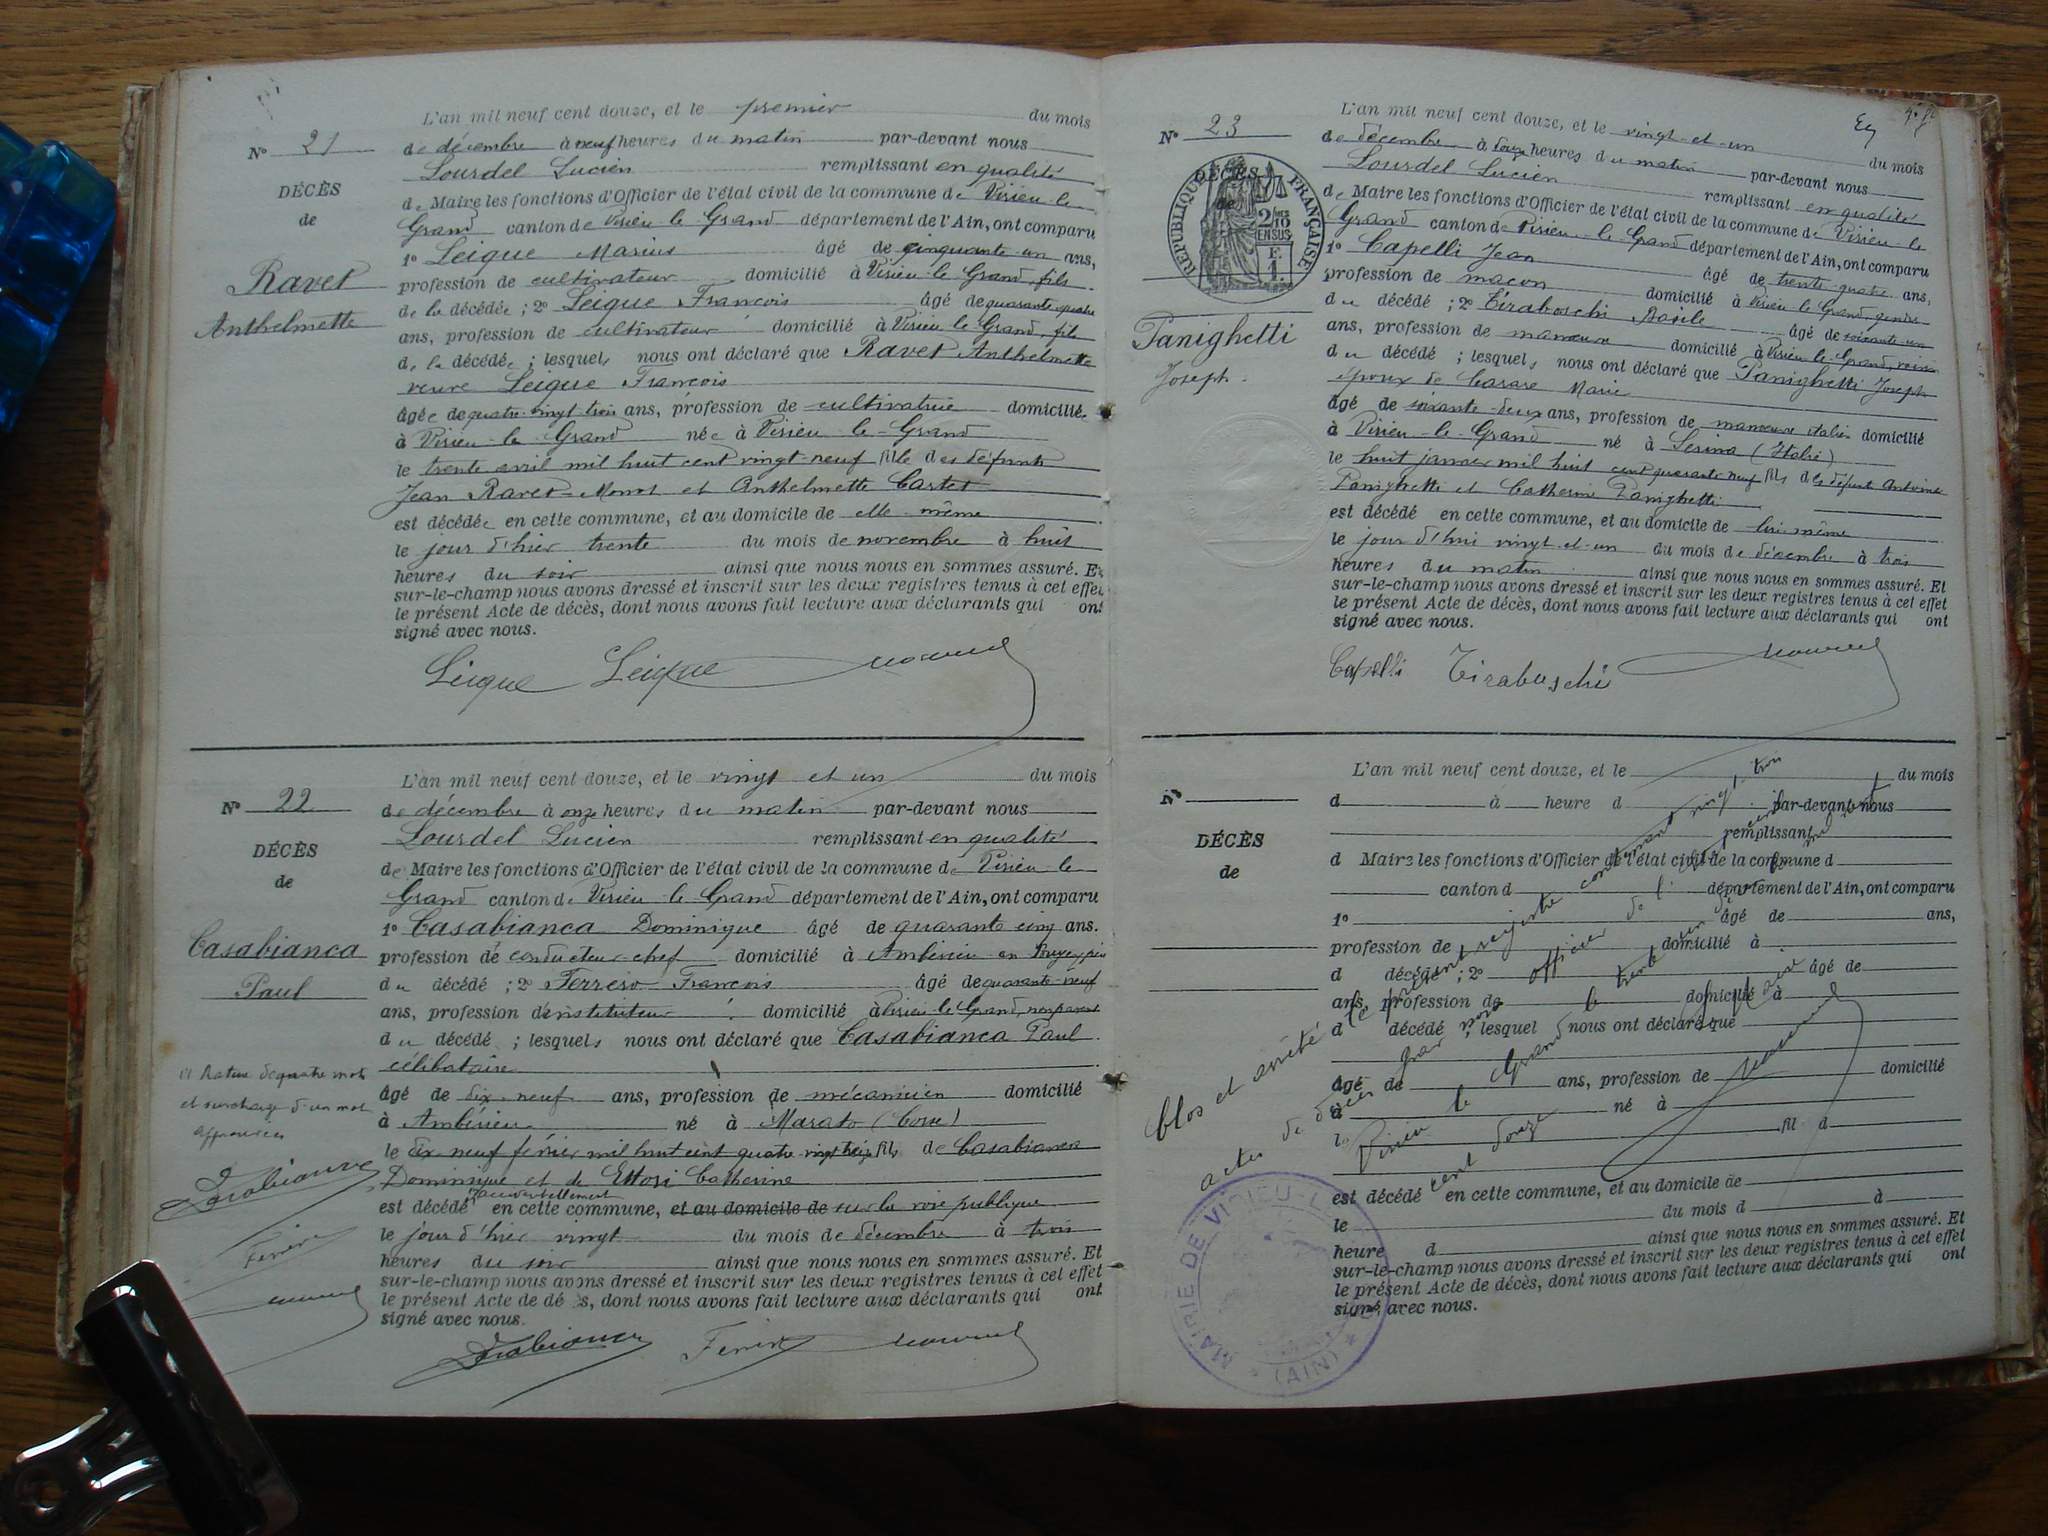 L'an mil neuf cent douze, et le premier du mois
N° 21
de décembre à neuf heures du matin par-devant nous
Lourdel Lucien remplissant en qualité
DÉCÈS
de Maire les fonctions d'Officier de l'état civil de la commune de Virieu-le-
de
Grand canton de Virieu-le-Grand département de l'Ain, ont comparu
1° Leique Marius âgé de cinquante-un ans,
Ravet
profession de cultivateur domicilié à Virieu-le-Grand, fils
de la décédée ; 2° Leique François âgé de quarante-quatre
Anthelmette
ans, profession de cultivateur domicilié à Virieu-le-Grand, fils
de la décédée ; lesquels nous ont déclaré que Ravet Anthelmette
veuve Leique François
âgée de quatre-vingt-trois ans, profession de cultivatrice domiciliée
à Virieu-le-Grand née à Virieu-le-Grand
le trente avril mil huit cent vingt-neuf fille des défunts
Jean Ravet-Monot et Anthelmette Cartet
est décédée en cette commune, et au domicile de elle-même
le jour d'hier trente du mois de novembre à huit
heures du soir ainsi que nous nous en sommes assuré. Et
sur-le-champ nous avons dressé et inscrit sur les deux registres tenus à cet effet
le présent Acte de décès, dont nous avons fait lecture aux déclarants qui ont
signé avec nous.
Leique Leique
L'an mil neuf cent douze, et le vingt et un du mois
N° 22
de décembre à onze heures du matin par-devant nous
Lourdel Lucien remplissant en qualité
DÉCÈS
de Maire les fonctions d'Officier de l'état civil de la commune de Virieu-le
de
Grand canton de Virieu-le-Grand département de l'Ain, ont comparu
1° Casabianca Dominique âgé de quarante cinq ans.
Casabianca
profession de conducteur-chef domicilié à Ambérieu en Bugey, père
Paul
du décédé ; 2° Ferrero François âgé de quarante-neuf
ans, profession d'instituteur domicilié à Virieu-le-Grand, non parent
du décédé ; lesquels nous ont déclaré que Casabianca Paul
célibataire
Rature de quatre mots
et surcharge d'un mot
approuvées
âgé de dix-neuf ans, profession de mécanicien domicilié
à Ambérieu né à Marato (Corse)
le dix-neuf février mil huit cent quatre-vingt-treize fils de Casabianca
Dominique et de Ettori Catherine
accidentellement
est décédé en cette commune, et au domicile de sur la voie publique
le jour d'hier vingt du mois de décembre à trois
heures du soir ainsi que nous nous en sommes assuré. Et
sur-le-champ nous avons dressé et inscrit sur les deux registres tenus à cet effet
le présent Acte de décès, dont nous avons fait lecture aux déclarants qui ont
signé avec nous.
L'an mil neuf cent douze, et le vingt-et-un du mois
N° 23
de décembre à douze heures du matin par-devant nous
Lourdel Lucien remplissant en qualité
DÉCÈS
de
RÉPUBLIQUE FRANÇAISE
2/10 EN SUS
F. 1.
de Maire les fonctions d'Officier de l'état civil de la commune de Virieu-le
Grand canton de Virieu-le-Grand département de l'Ain, ont comparu
1° Capelli Jean âgé de trente-quatre ans,
profession de maçon domicilié à Virieu-le-Grand, gendre
du décédé ; 2° Tiraboschi Basile âgé de soixante-un
Panighetti
Joseph
ans, profession de manœuvre domicilié à Virieu-le-Grand, voisin
du décédé ; lesquels nous ont déclaré que Panighetti Joseph
époux de Carare Marie
âgé de soixante-deux ans, profession de manœuvre italien domicilié
à Virieu-le-Grand né à Serina (Italie)
le huit janvier mil huit cent quarante neuf fils des défunts Antoine
Panighetti et Catherine Panighetti
est décédé en cette commune, et au domicile de lui-même
le jour d'hui vingt-et-un du mois de décembre à trois
heures du matin ainsi que nous nous en sommes assuré. Et
sur-le-champ nous avons dressé et inscrit sur les deux registres tenus à cet effet
le présent Acte de décès, dont nous avons fait lecture aux déclarants qui ont
signé avec nous.
Capelli Tiraboschi
L'an mil neuf cent douze, et le du mois
N°
d à heure d par-devant nous
remplissant
DÉCÈS
d Maire les fonctions d'Officier de l'état civil de la commune d
de
canton d département de l'Ain, ont comparu
1° âgé de ans,
profession de domicilié à
d décédé ; 2° âgé de
ans, profession de domicilié à
d décédé ; lesquel nous ont déclaré que
âgé de ans, profession de domicilié
à né à
le fil d
est décédé en cette commune, et au domicile de
le du mois d à
heure d ainsi que nous nous en sommes assuré. Et
sur-le-champ nous avons dressé et inscrit sur les deux registres tenus à cet effet
le présent Acte de décès, dont nous avons fait lecture aux déclarants qui ont
signé avec nous.
Clos et arrêté le présent registre contenant vingt-trois
actes de décès par nous officier de l'état civil
Virieu le Grand le trente un décembre mil neuf
cent douze
MAIRIE DE VIRIEU-LE-GD * (AIN) *